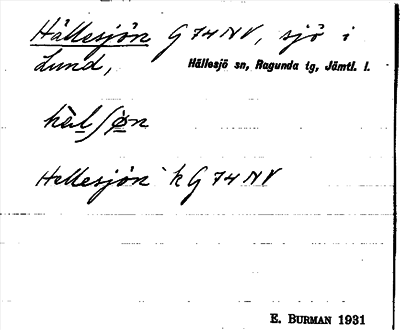 Hällesjön G74NV, sjö i
Lund, Hällesjö sn, Ragunda tg, Jämtl. l.
Hellesjön k G74NV
E. BURMAN 1931